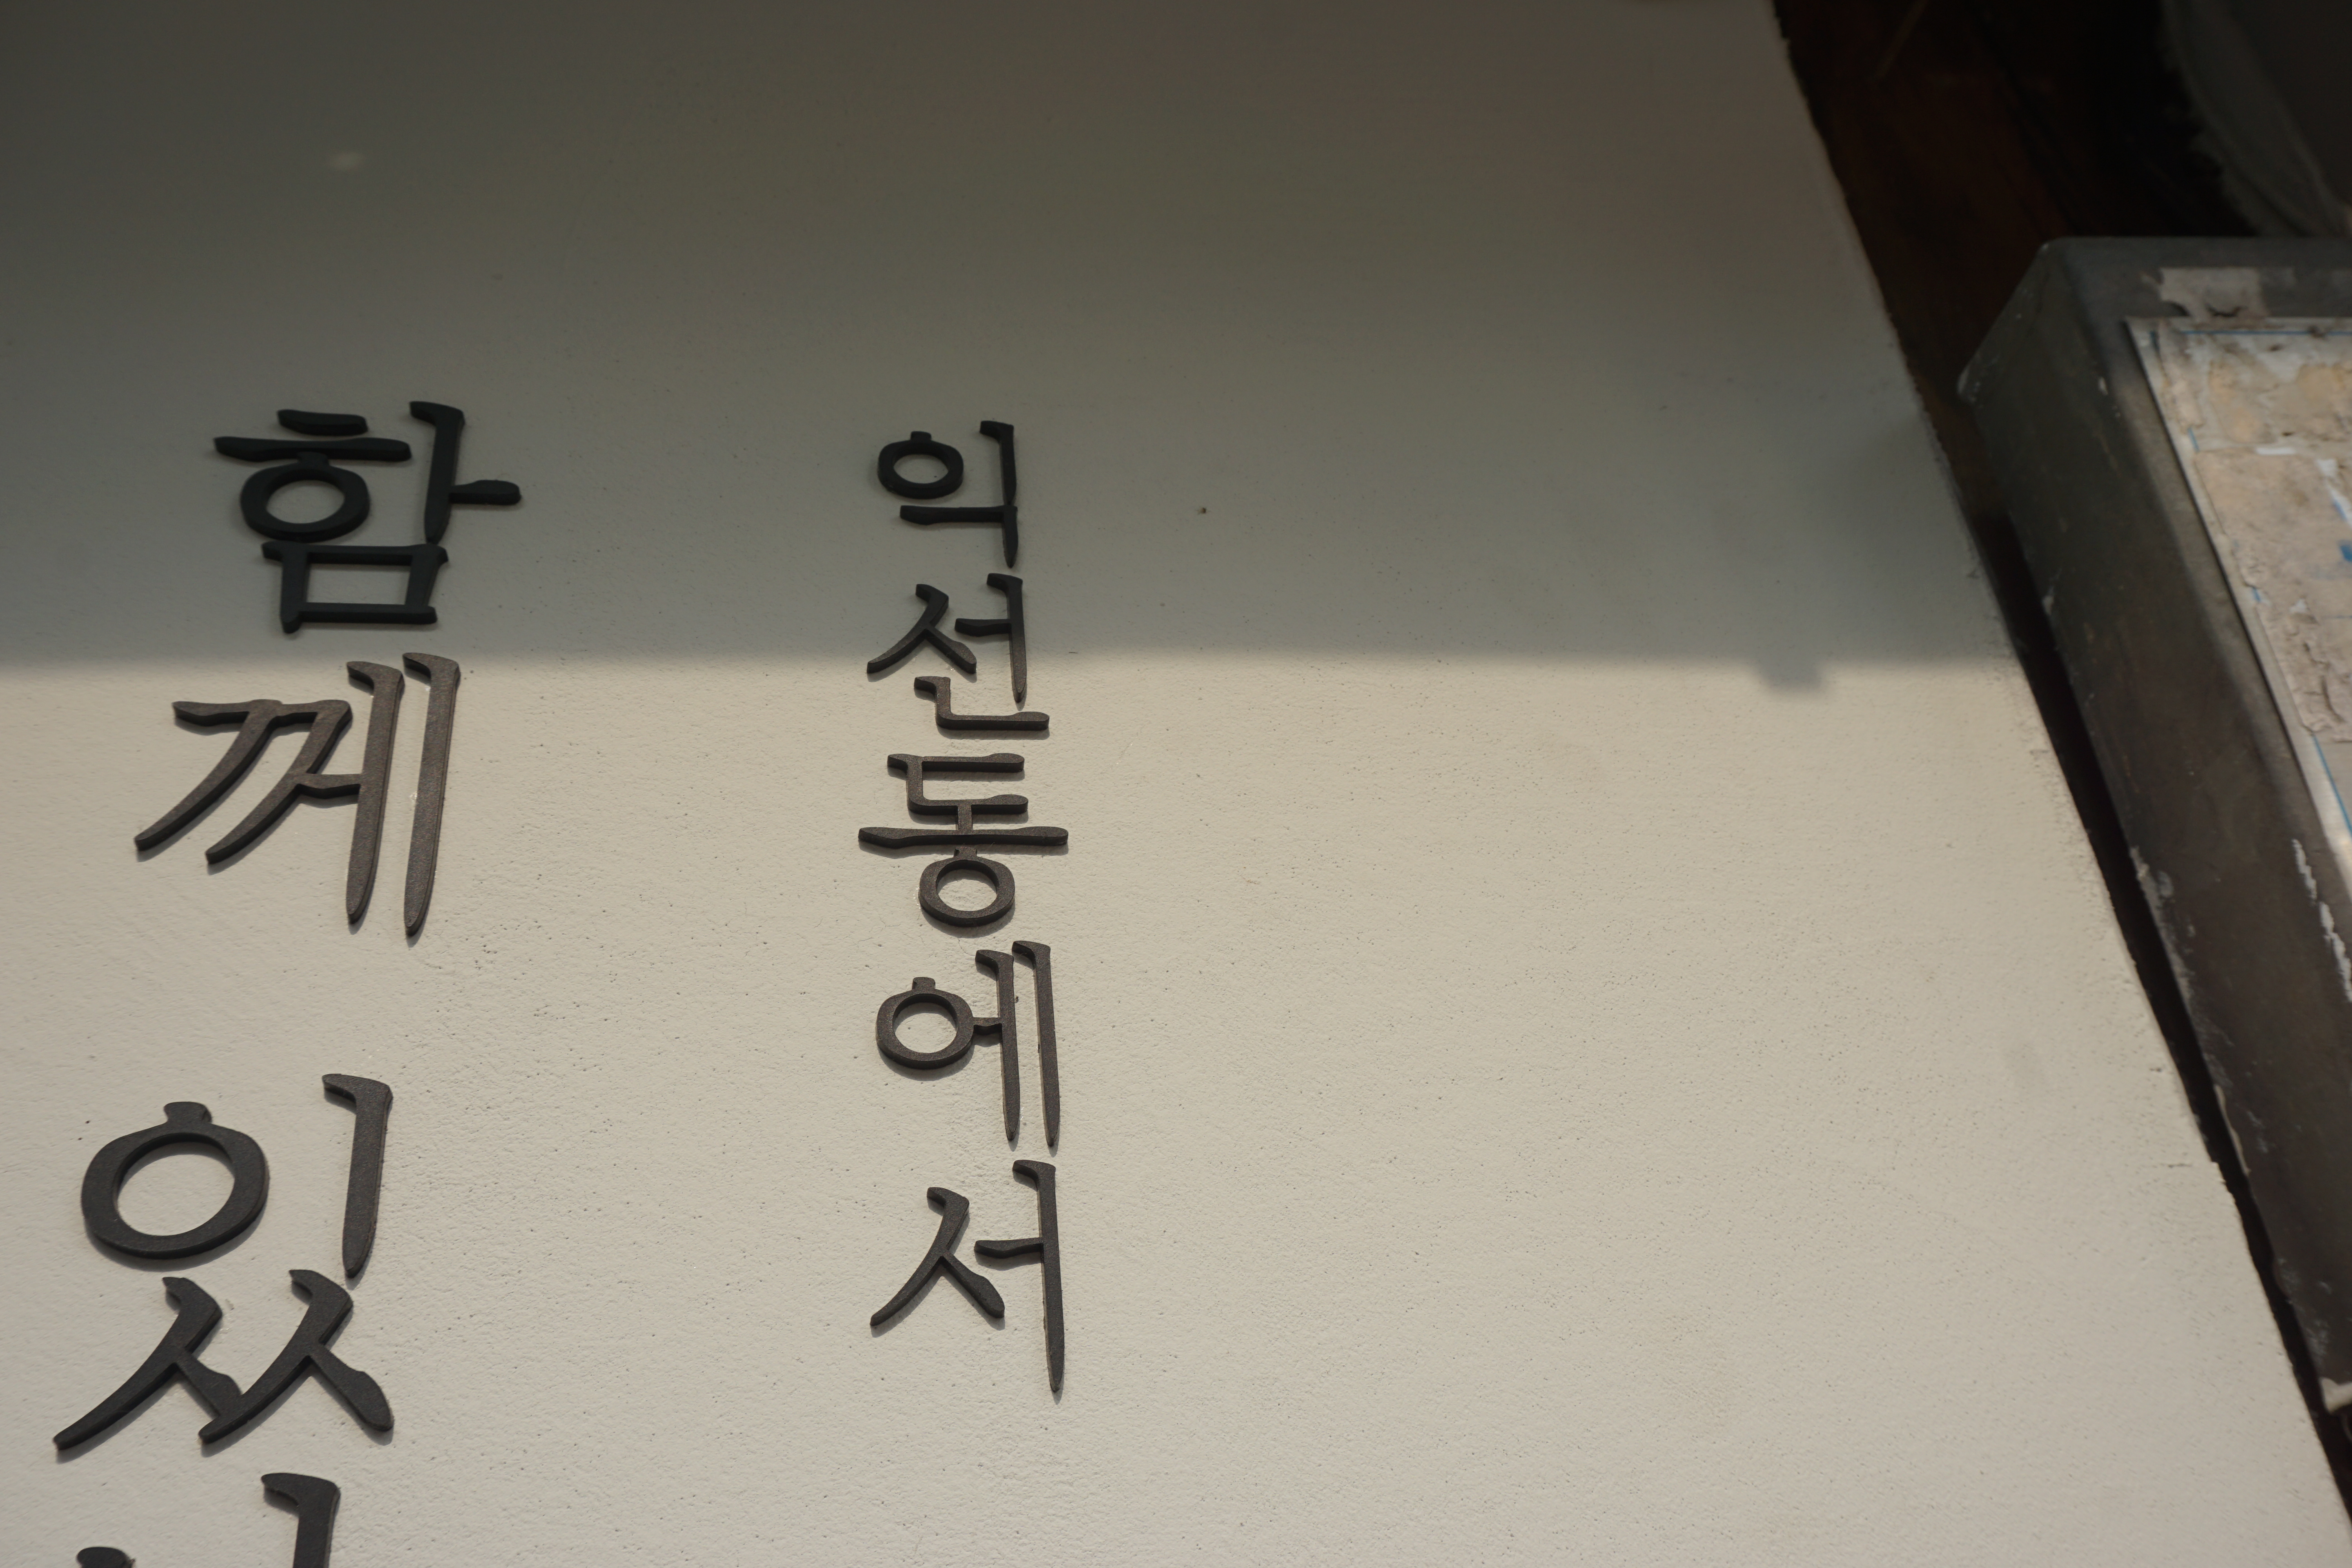 익선동에서
함께 있